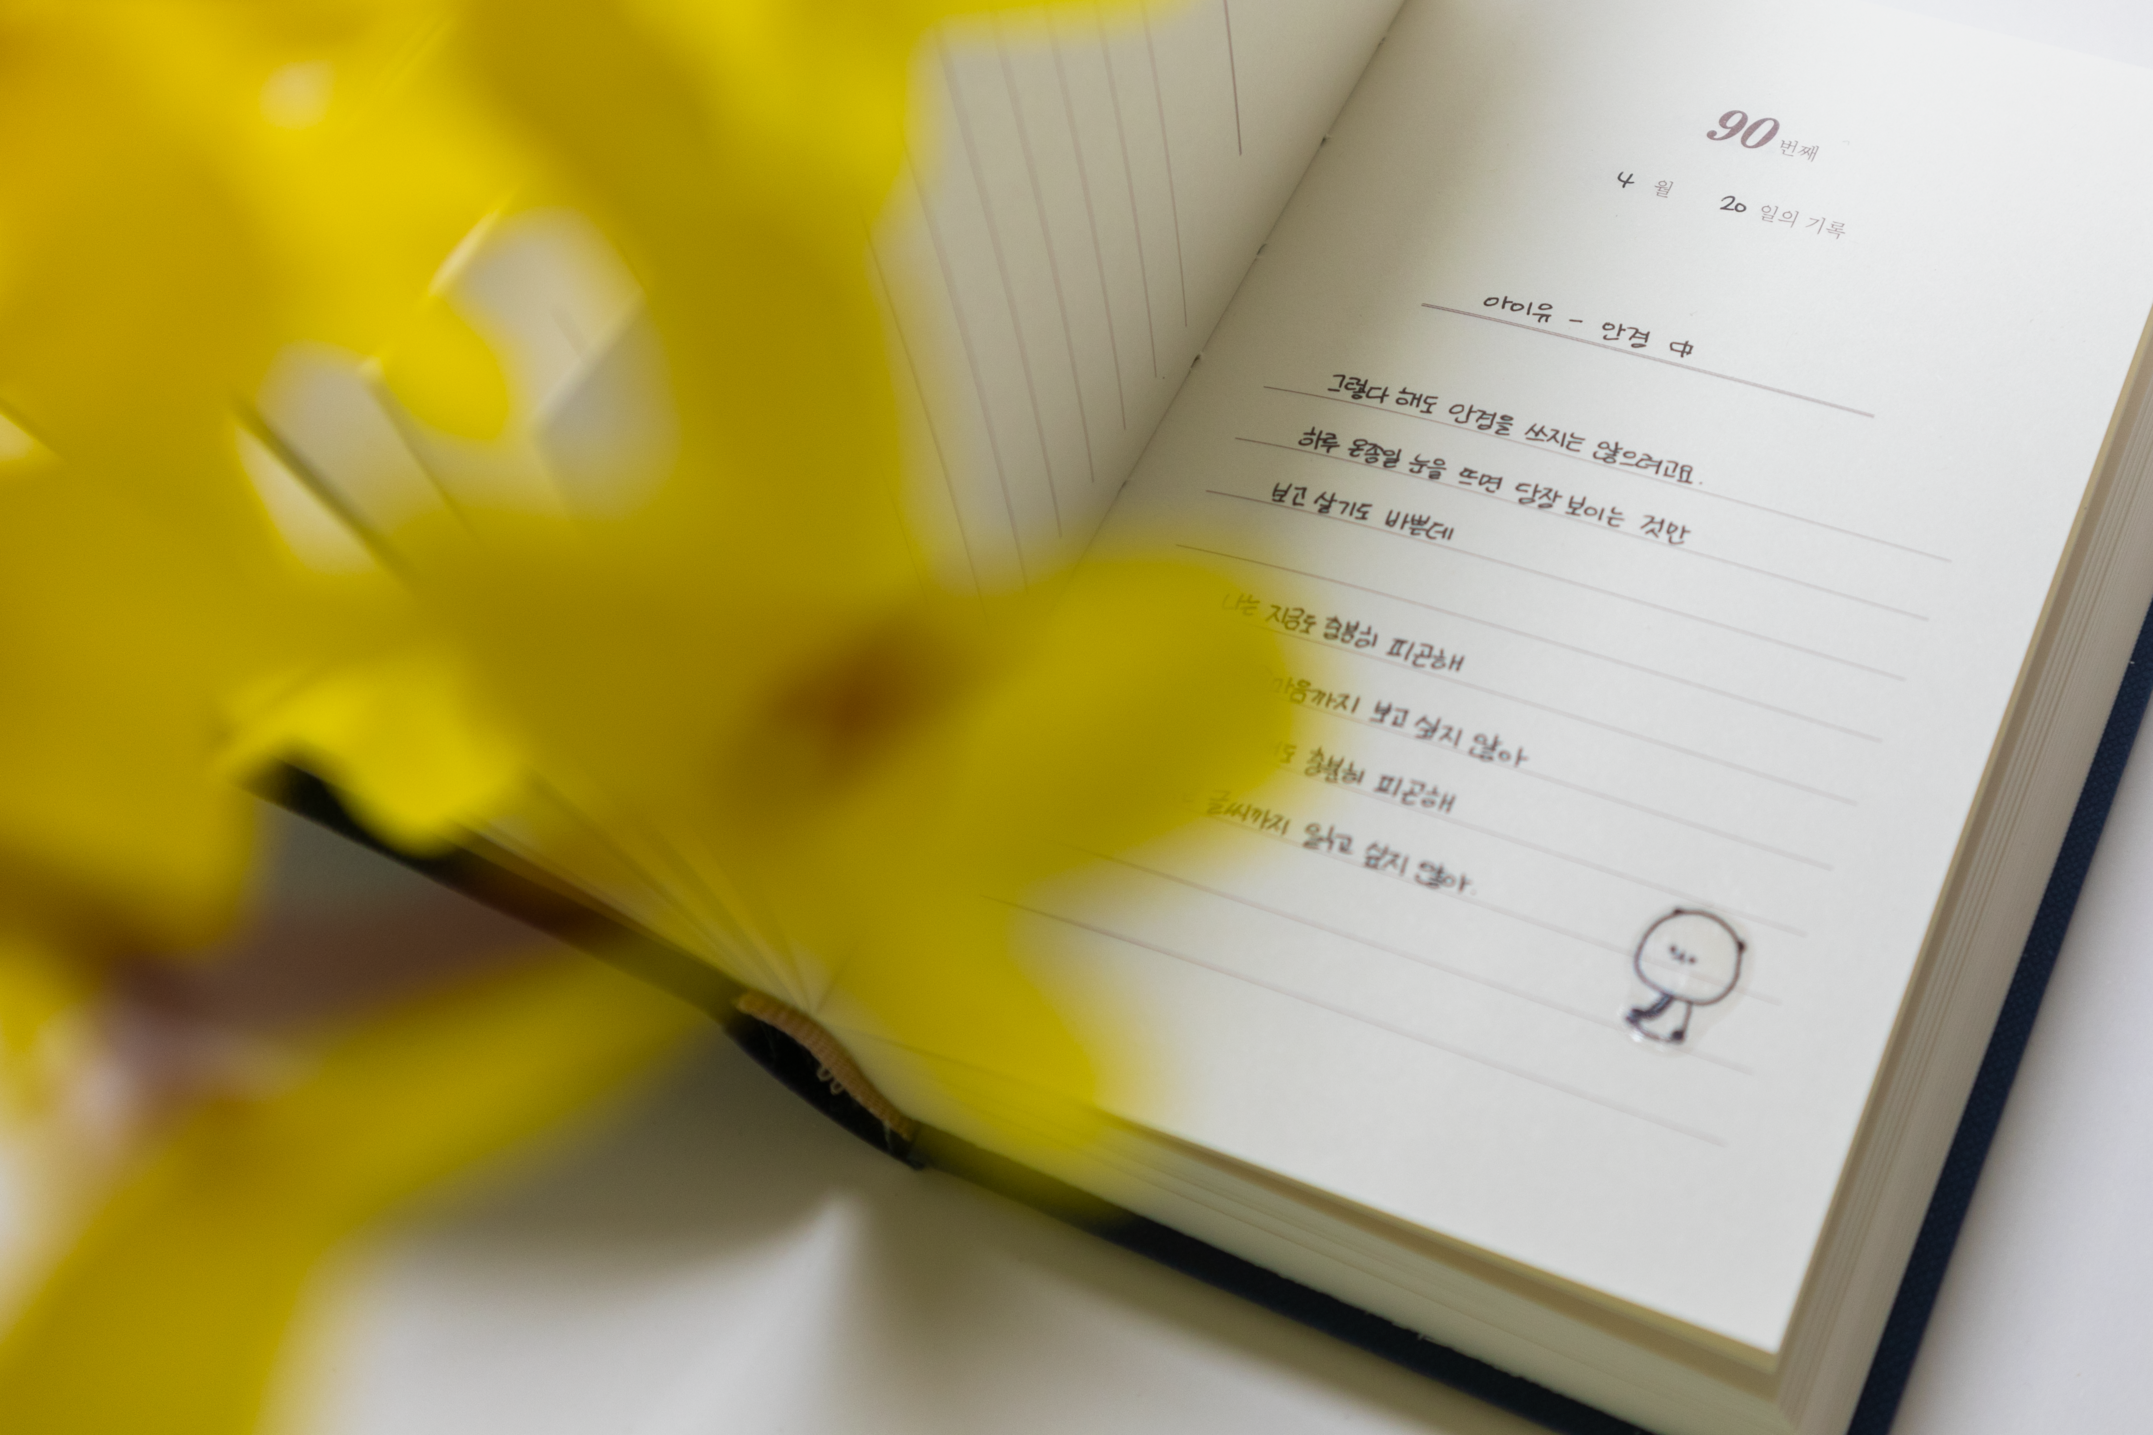 90번째
4월 20일의 기록
아이유 - 안경 中
그렇다 해도 안경을 쓰지는 않으려고요.
하루 온종일 눈을 뜨면 당장 보이는 것만
보고 살기도 바쁜데
나는 지금도 충분히 피곤해
마음까지 보고 싶지 않아
충분히 피곤해
글씨까지 읽고 싶지 않아.